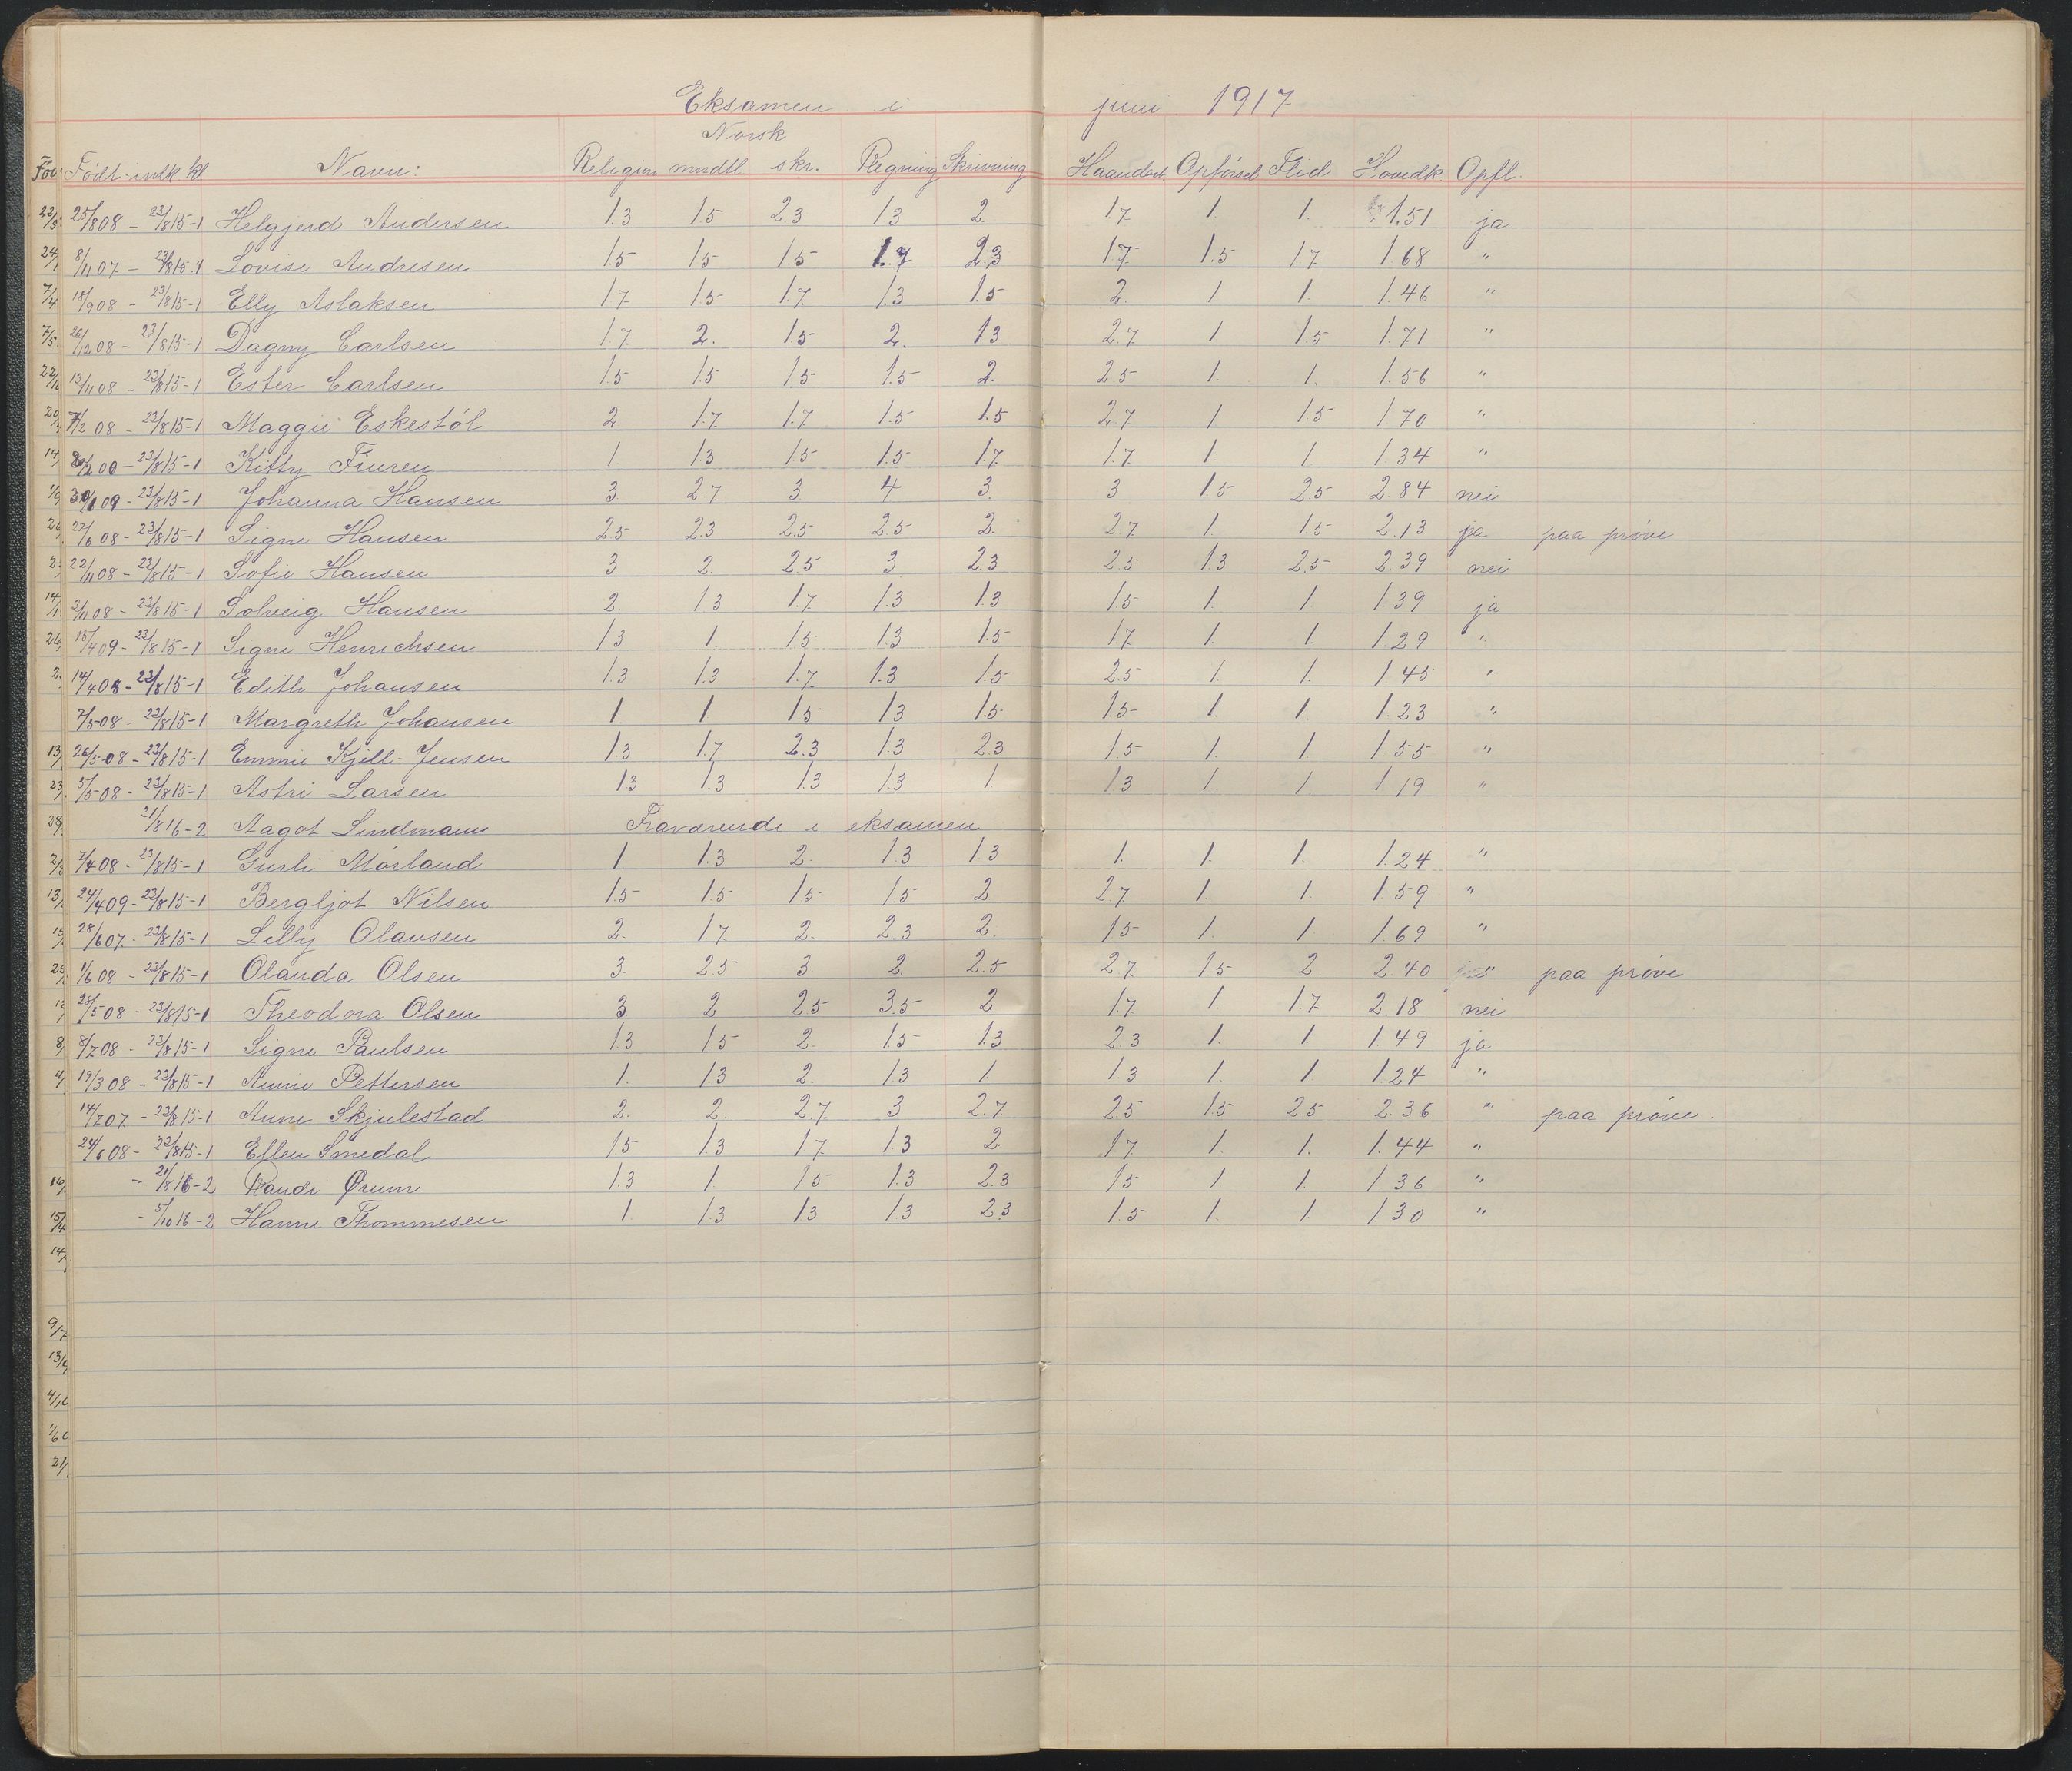 Eksamen i juni 1917
Norsk
Født - indk kl Navn: Religion mndtl skr. Regning Skrivning Haandarb. Opførsel Flid Hovedk Opfl.
25/8 08 - 23/8 15 - 1 Helgjerd Andersen 1.3 1.5 2.3 1.3 2. 1.7 1. 1. 1.51 ja
8/11 07 - 23/8 15 - 1 Lovise Andresen 1.5 1.5 1.5 1.7 2.3 1.7 1.5 1.7 1.68 "
18/9 08 - 23/8 15 - 1 Elly Aslaksen 1.7 1.5 1.7 1.3 1.5 2. 1. 1. 1.46 "
26/12 08 - 23/8 15 - 1 Dagny Carlsen 1.7 2. 1.5 2. 1.3 2.7 1 1.5 1.71 "
13/11 08 - 23/8 15 - 1 Ester Carlsen 1.5 1.5 1.5 1.5 2. 2.5 1. 1. 1.56 "
7/2 08 - 23/8 15 - 1 Maggie Eskestøl 2 1.7 1.7 1.5 1.5 2.7 1 1.5 1.70 "
- 23/8 15 - 1 Kitty Finren 1. 1.3 1.5 1.5 1.7 1.7 1. 1. 1.34 "
- 23/8 15 - 1 Johanna Hansen 3 2.7 3 4 3. 3 1.5 2.5 2.84 nei
27/6 08 - 23/8 15 - 1 Signe Hansen 2.5 2.3 2.5 2.5 2. 2.7 1. 1.5 2.13 ja paa prøve
22/11 08 - 23/8 15 - 1 Sofie Hansen 3 2. 2.5 3 2.3 2.5 1.3 2.5 2.39 nei
3/11 08 - 23/8 15 - 1 Solveig Hansen 2. 1.3 1.7 1.3 1.3 1.5 1. 1 1.39 ja
15/4 09 - 23/8 15 - 1 Signe Henrichsen 1.3 1 1.5 1.3 1.5 1.7 1. 1. 1.29 "
14/4 08 - 23/8 15 - 1 Edith Johansen 1.3 1.3 1.7 1.3 1.5 2.5 1. 1. 1.45 "
7/5 08 - 23/8 15 - 1 Margreth Johansen 1 1 1.5 1.3 1.5 1.5 1. 1. 1.23 "
26/5 08 - 23/8 15 - 1 Emmie Kjell-Jensen 1.3 1.7 2.3 1.3 2.3 1.5 1. 1 1.55 "
5/5 08 - 23/8 15 - 1 Astri Larsen 1.3 1.3 1.3 1.3 1. 1.3 1. 1. 1.19 "
21/8 16 - 2 Aagot Lindmann Fraværende i eksamen
7/4 08 - 23/8 15 - 1 Gurli Mørland 1 1.3 2. 1.3 1.3 1. 1. 1. 1.24 "
24/4 09 - 23/8 15 - 1 Bergljot Nilsen 1.5 1.5 1.5 1.5 2. 2.7 1. 1. 1.59 "
28/6 07 - 23/8 15 - 1 Lilly Olausen 2. 1.7 2. 2.3 2. 1.5 1. 1 1.69 "
1/6 08 - 23/8 15 - 1 Olanda Olsen 3. 2.5 3 2. 2.5 2.7 1.5 2. 2.40 " paa prøve
25/5 08 - 23/8 15 - 1 Theodora Olsen 3. 2 2.5 3.5 2 1.7 1. 1.7 2.18 nei
8/7 08 - 23/8 15 - 1 Signe Paulsen 1.3 1.5 2. 1.5 1.3 2.3 1. 1. 1.49 ja
19/3 08 - 23/8 15 - 1 Anne Pettersen 1. 1.3 2. 1.3 1. 1.3 1. 1 1.24 "
14/7 07 - 23/8 15 - 1 Anne Skjulestad 2. 2. 2.7 3 2.7 2.5 1.5 2.5 2.36 " paa prøve.
24/6 08 - 23/8 15 - 1 Ellen Smedal 1.5 1.3 1.7 1.3 2. 1.7 1. 1. 1.44 "
- 21/8 16 - 2 Randi Ørum 1.3 1. 1.5 1.3 2.3 1.5 1. 1. 1.36 "
- 5/10 16 - 2 Hanne Thommesen 1. 1.3 1.3 1.3 2.3 1.5 1. 1. 1.30 "